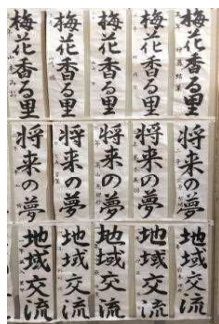 梅花香る里
梅花香る里
梅花香る里
梅花香る里
梅花香る里
将来の夢
将来の夢
将来の夢
将来の夢
将来の夢
地域交流
地域交流
地域交流
地域交流
地域交流